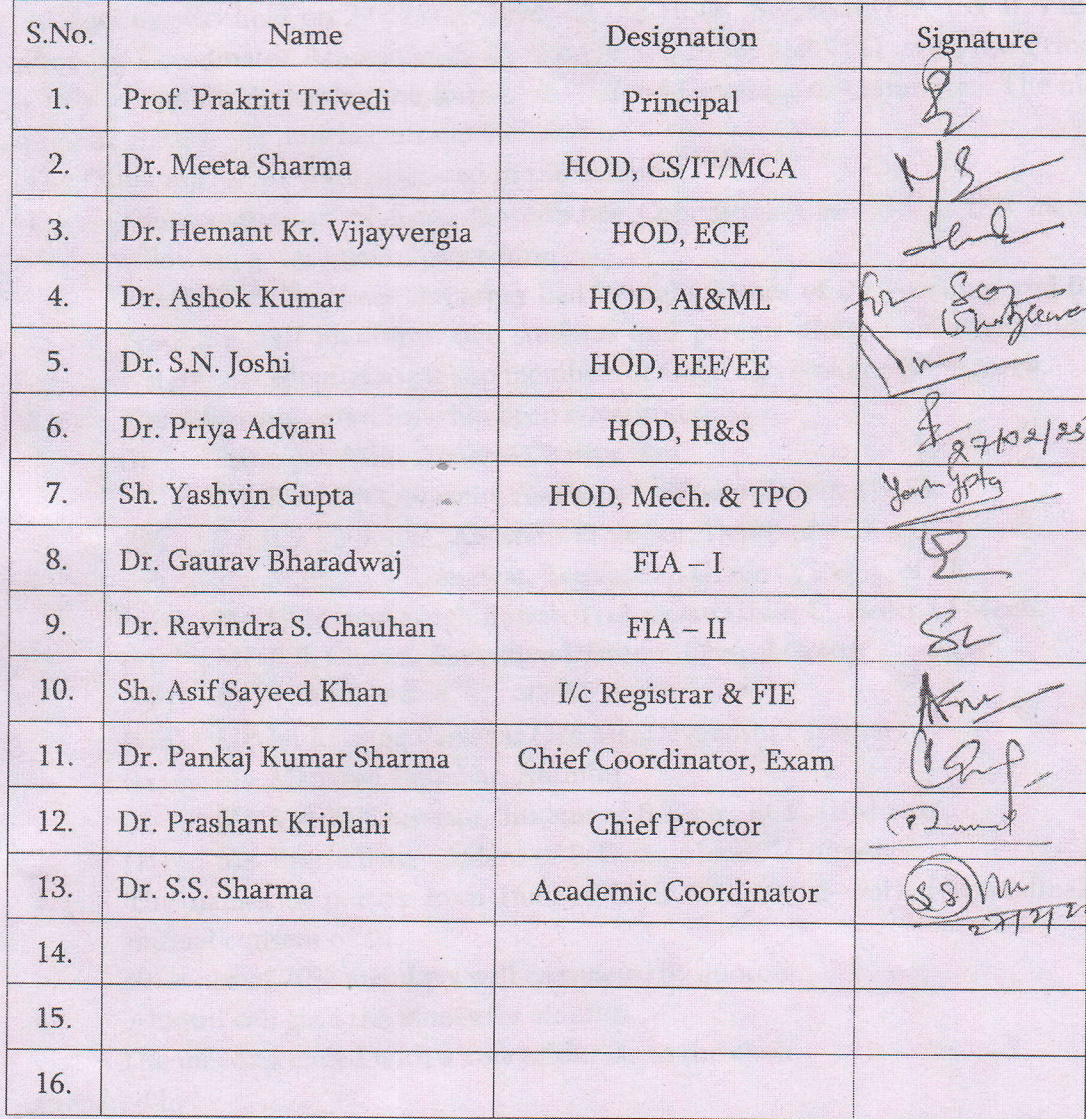 S.No. Name Designation Signature
1. Prof. Prakriti Trivedi Principal
2. Dr. Meeta Sharma HOD, CS/IT/MCA
3. Dr. Hemant Kr. Vijayvergia HOD, ECE
4. Dr. Ashok Kumar HOD, AI&ML
5. Dr. S.N. Joshi HOD, EEE/EE
6. Dr. Priya Advani HOD, H&S 27/02/25
7. Sh. Yashvin Gupta HOD, Mech. & TPO
8. Dr. Gaurav Bharadwaj FIA – I
9. Dr. Ravindra S. Chauhan FIA – II
10. Sh. Asif Sayeed Khan I/c Registrar & FIE
11. Dr. Pankaj Kumar Sharma Chief Coordinator, Exam
12. Dr. Prashant Kriplani Chief Proctor
13. Dr. S.S. Sharma Academic Coordinator
14.
15.
16.